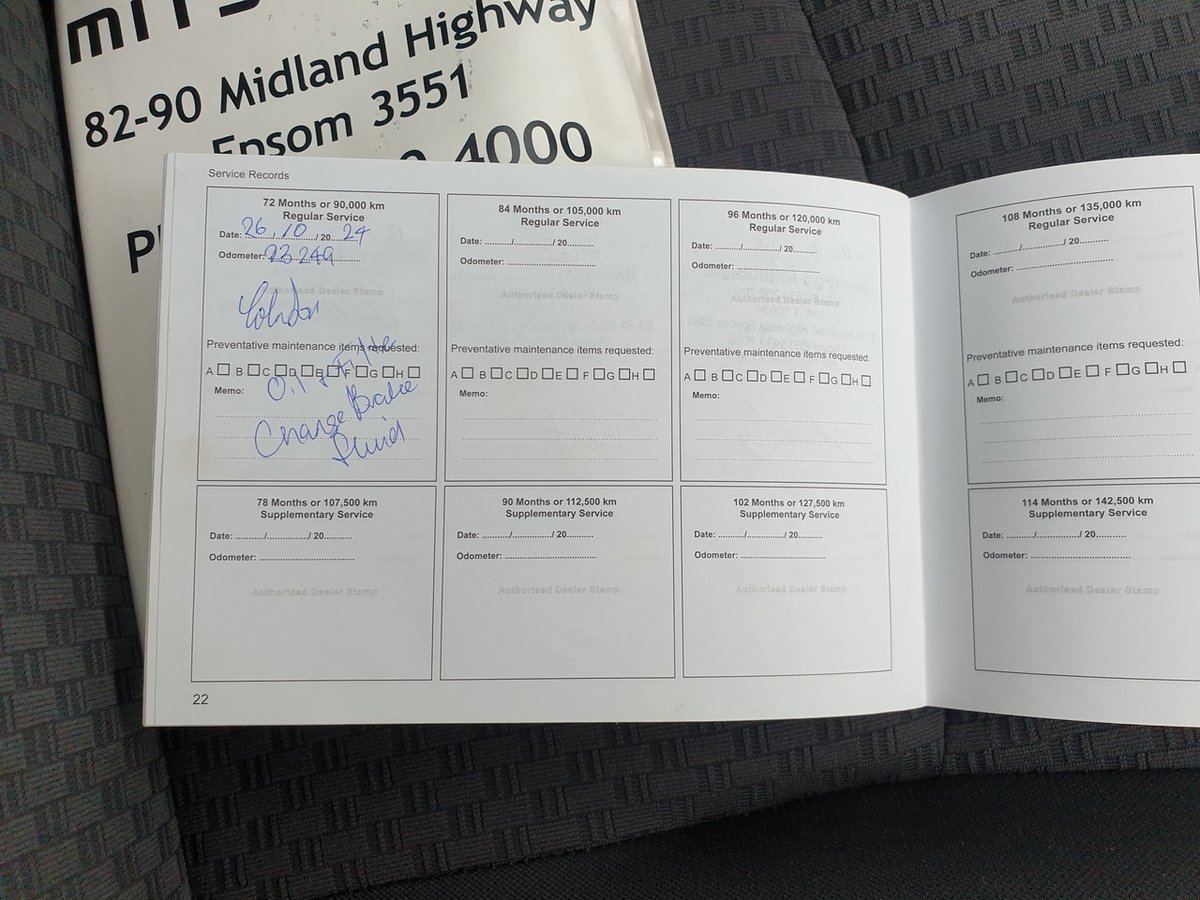 82-90 Midland Highway
Epsom 3551
4000
Service Records
72 Months or 90,000 km
Regular Service
Date: 26/10/2024
Odometer: 23249
Authorised Dealer Stamp
Preventative maintenance items requested:
A B C D E F G H
Memo:
Oil & Filter
Change Brake
Fluid
84 Months or 105,000 km
Regular Service
Date: ........./............./ 20.........
Odometer: ................................
Authorised Dealer Stamp
Preventative maintenance items requested:
A B C D E F G H
Memo:
96 Months or 120,000 km
Regular Service
Date: ........./............./ 20.........
Odometer: ................................
Authorised Dealer Stamp
Preventative maintenance items requested:
A B C D E F G H
Memo:
108 Months or 135,000 km
Regular Service
Date: ........./............./ 20.........
Odometer: ................................
Authorised Dealer Stamp
Preventative maintenance items requested:
A B C D E F G H
Memo:
78 Months or 107,500 km
Supplementary Service
Date: ........./............./ 20.........
Odometer: ................................
Authorised Dealer Stamp
90 Months or 112,500 km
Supplementary Service
Date: ........./............./ 20.........
Odometer: ................................
Authorised Dealer Stamp
102 Months or 127,500 km
Supplementary Service
Date: ........./............./ 20.........
Odometer: ................................
Authorised Dealer Stamp
114 Months or 142,500 km
Supplementary Service
Date: ........./............./ 20.........
Odometer: ................................
Authorised Dealer Stamp
22